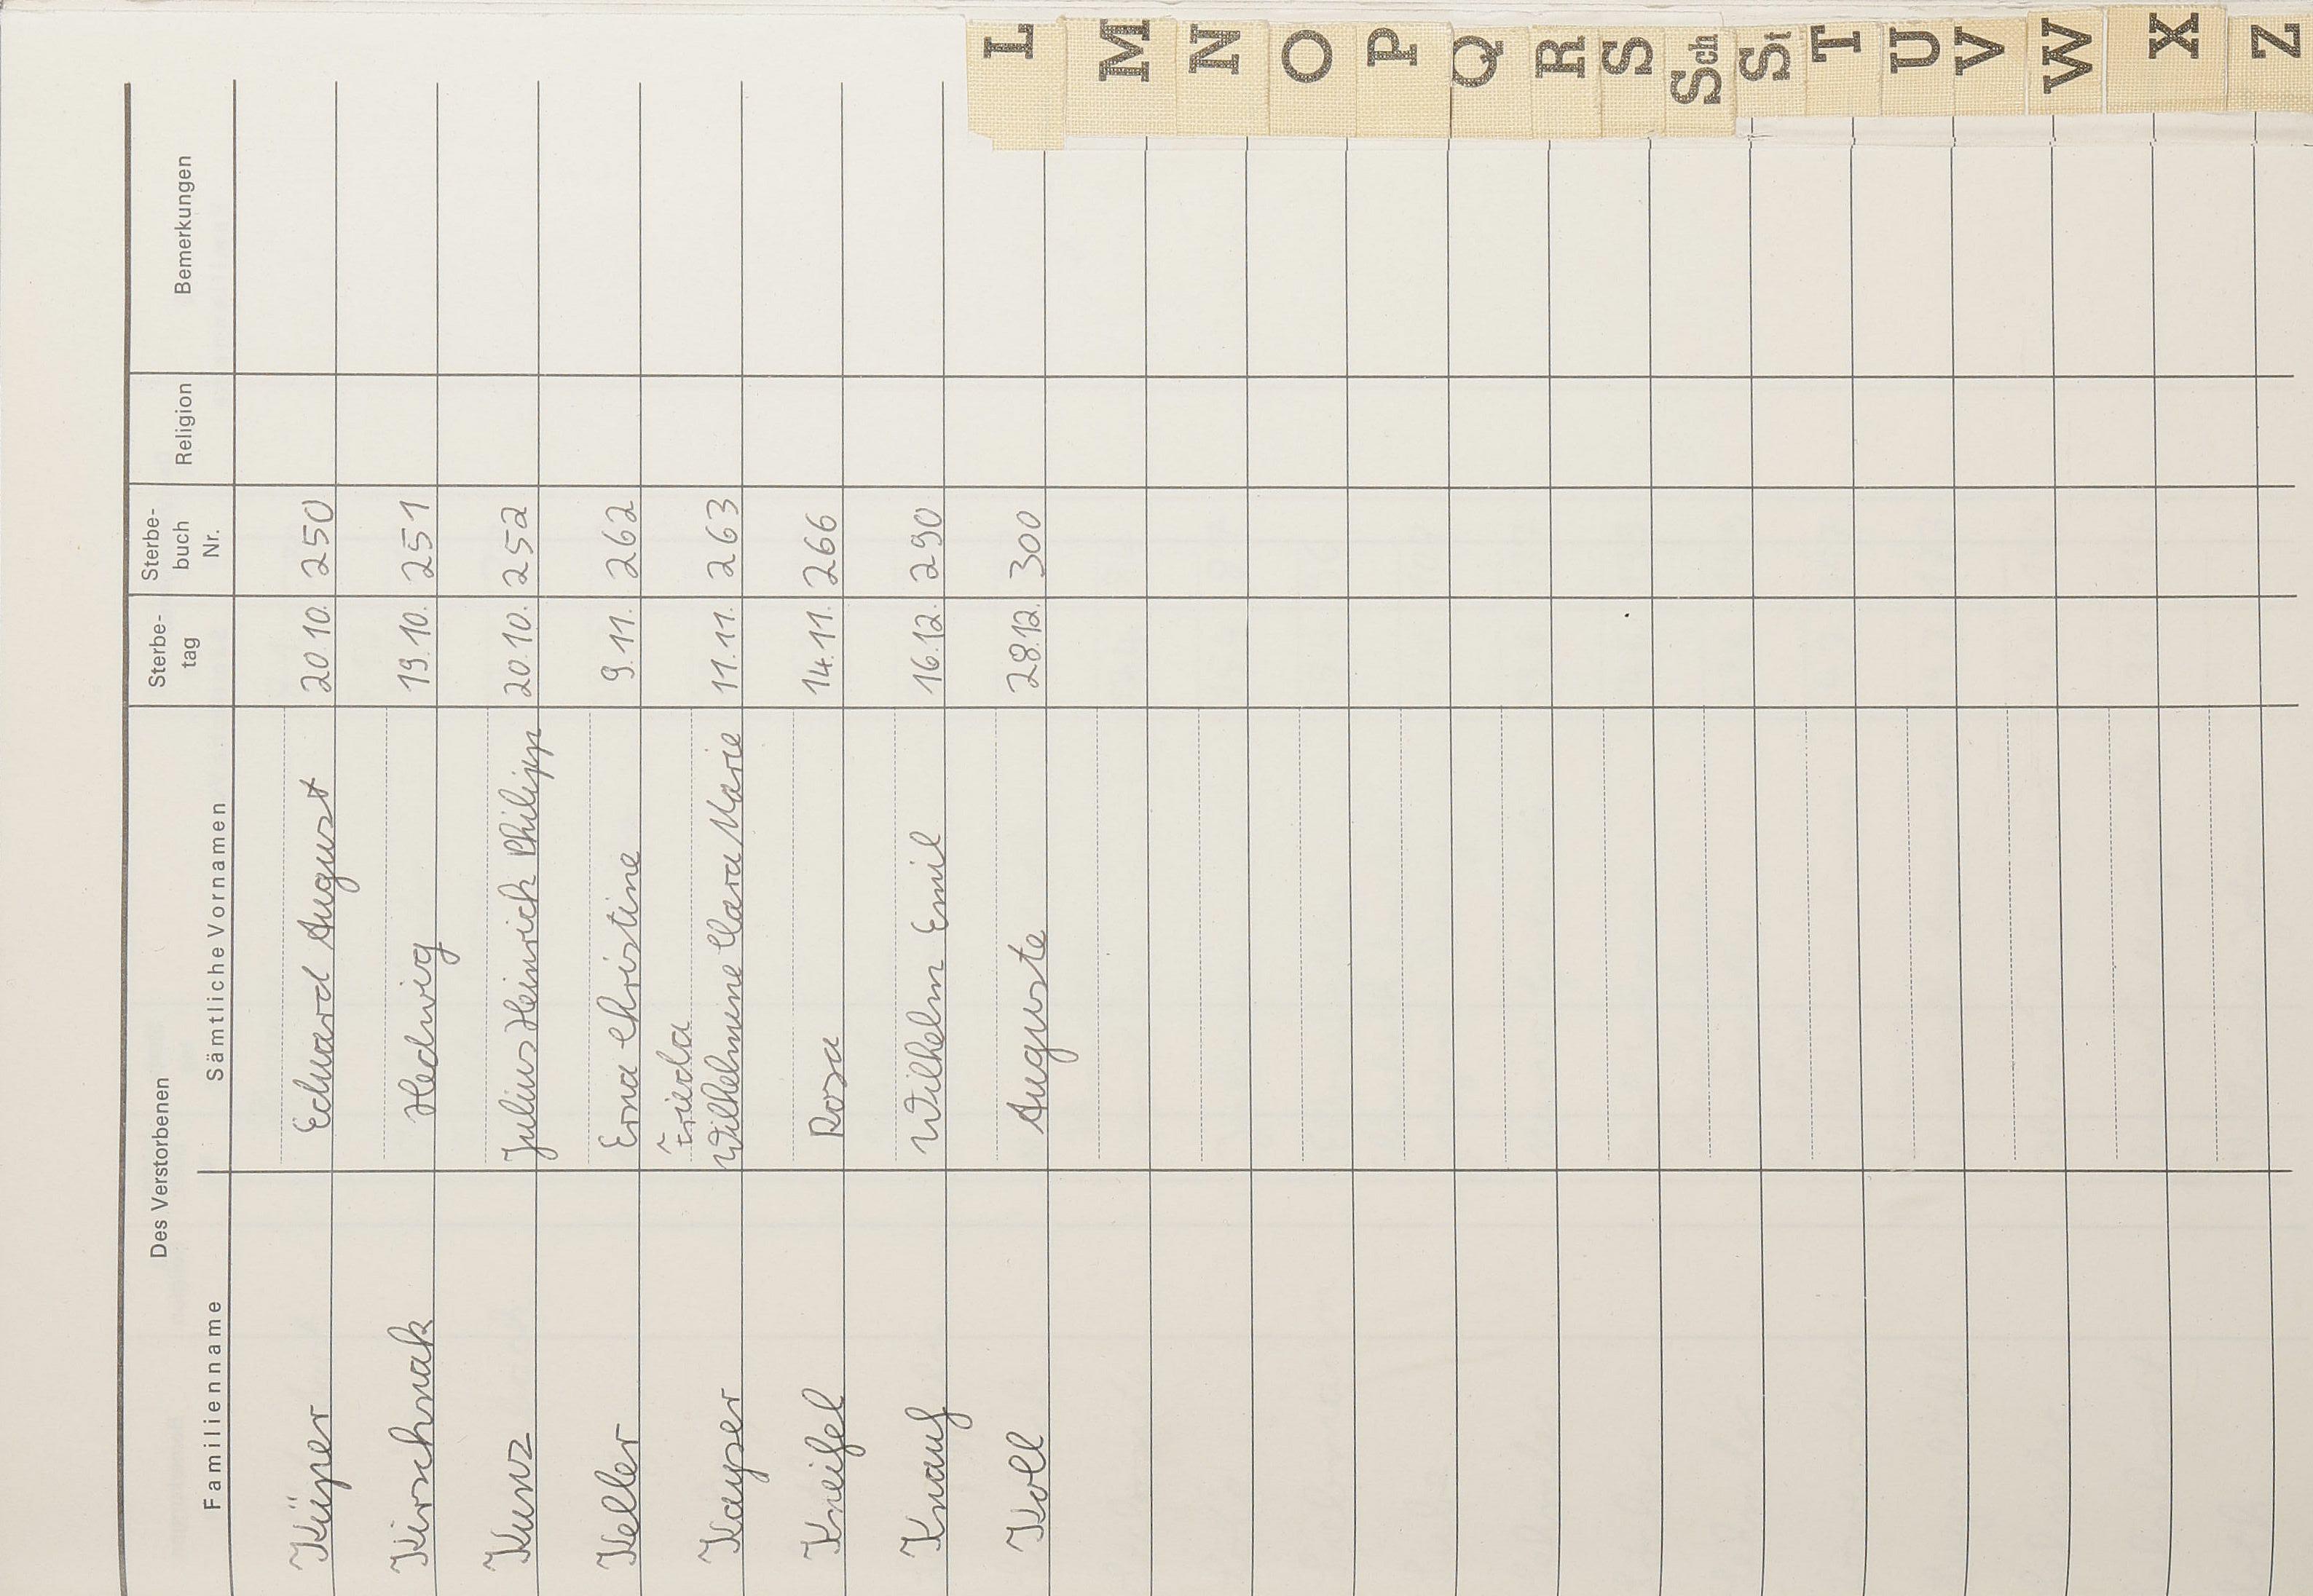 Des Verstorbenen
Familienname Sämtliche Vornamen Sterbe-tag Sterbe-buch Nr. Religion Bemerkungen
Küper Eduard August 20.10. 250
Kirschnak Hedwig 19.10. 251
Kunz Julius Heinrich Philipp 20.10. 252
Keller Erna Christine 9.11. 262
Frieda
Kayser Wilhelmine Clara Marie 11.11. 263
Kneifel Rosa 14.11. 266
Knauf Wilhelm Emil 16.12. 290
Koll Auguste 28.12. 300
L
M
N
O
P
Q
R
S
Sch
St
T
U
V
W
X
Z